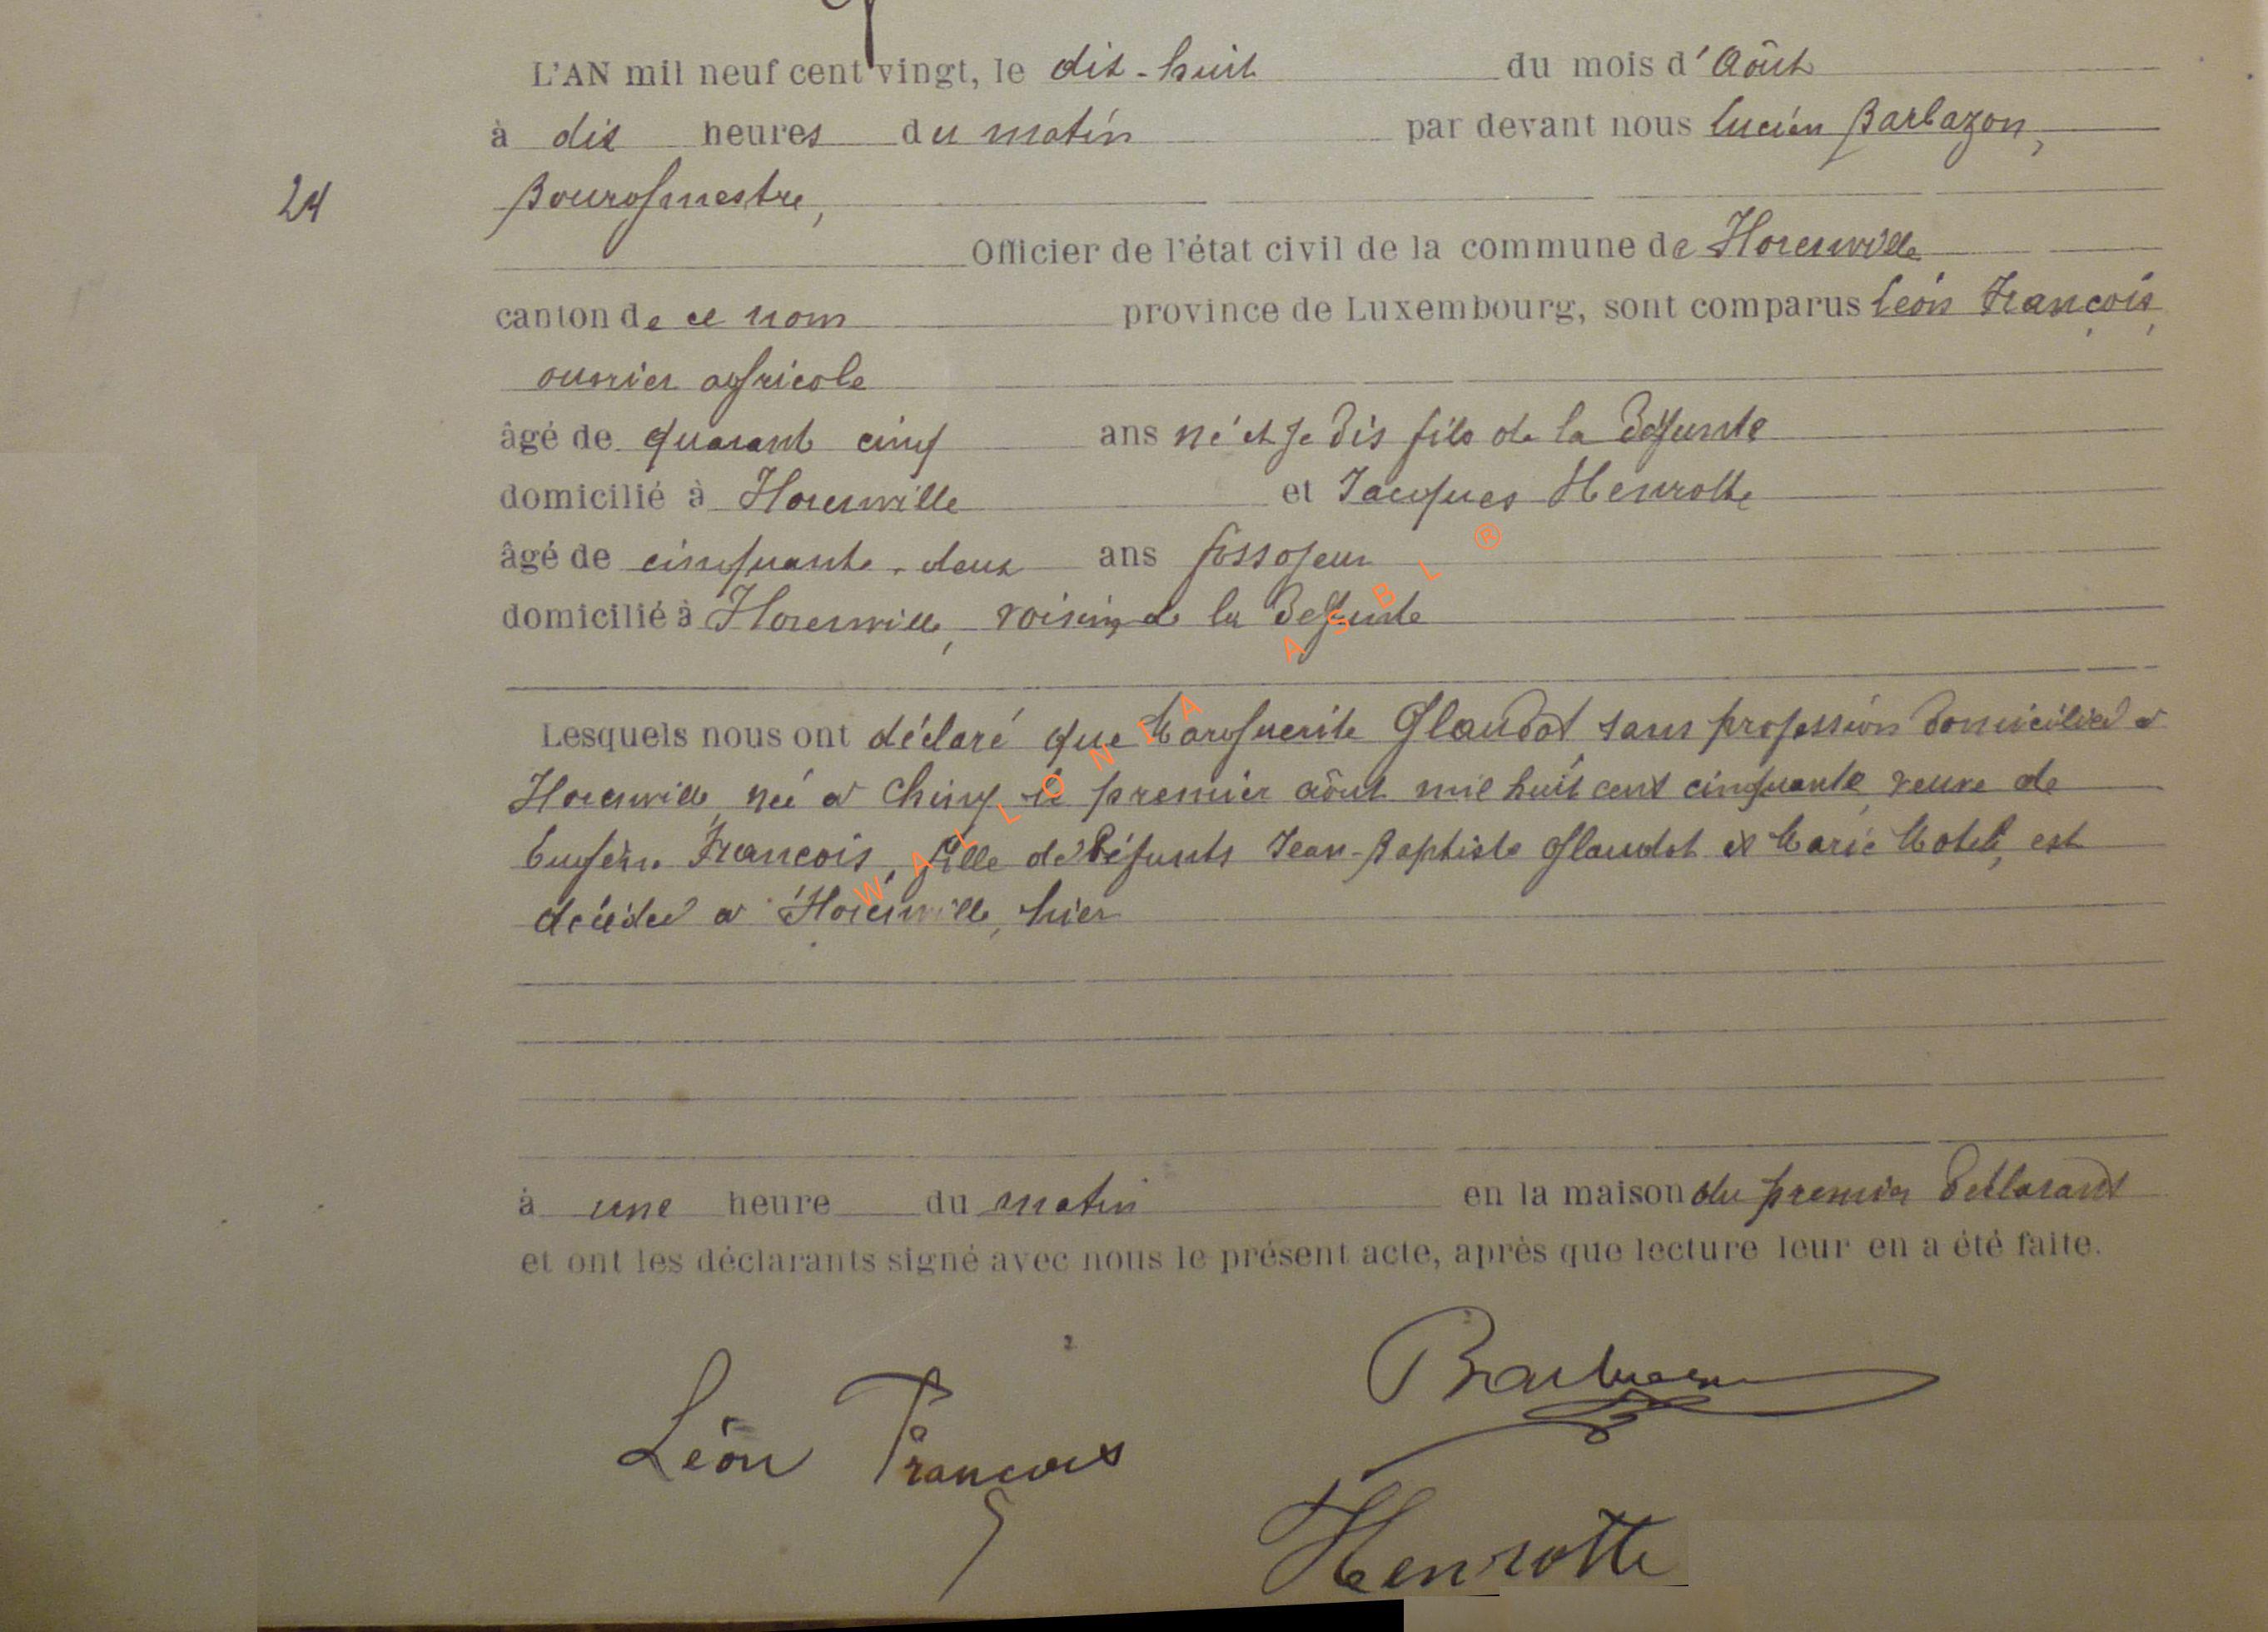 L'AN mil neuf cent vingt, le dix-huit du mois d'Août
à dix heures du matin par devant nous Lucien Barbazon,
24 Bourgmestre,
Officier de l'état civil de la commune de Florenville
canton de ce nom province de Luxembourg, sont comparus Léon François,
ouvrier agricole
âgé de quarant cinq ans fils de la défunte
domicilié à Florenville et Jacques Henrotte
âgé de cinquante-deux ans fossoyeur
domicilié à Florenville, voisin de la défunte
Lesquels nous ont déclaré que Marguerite Glaudot sans profession domiciliée à
Florenville, née à Chiny le premier août mil huit cent cinquante, veuve de
Eugène François, fille de défunts Jean-Baptiste Glaudot et Marie est
décédée à Florenville, hier
à une heure du matin en la maison du premier déclarant
et ont les déclarants signé avec nous le présent acte, après que lecture leur en a été faite.
Barbazon
Léon François
Henrotte
WALLONIA ASBL ®